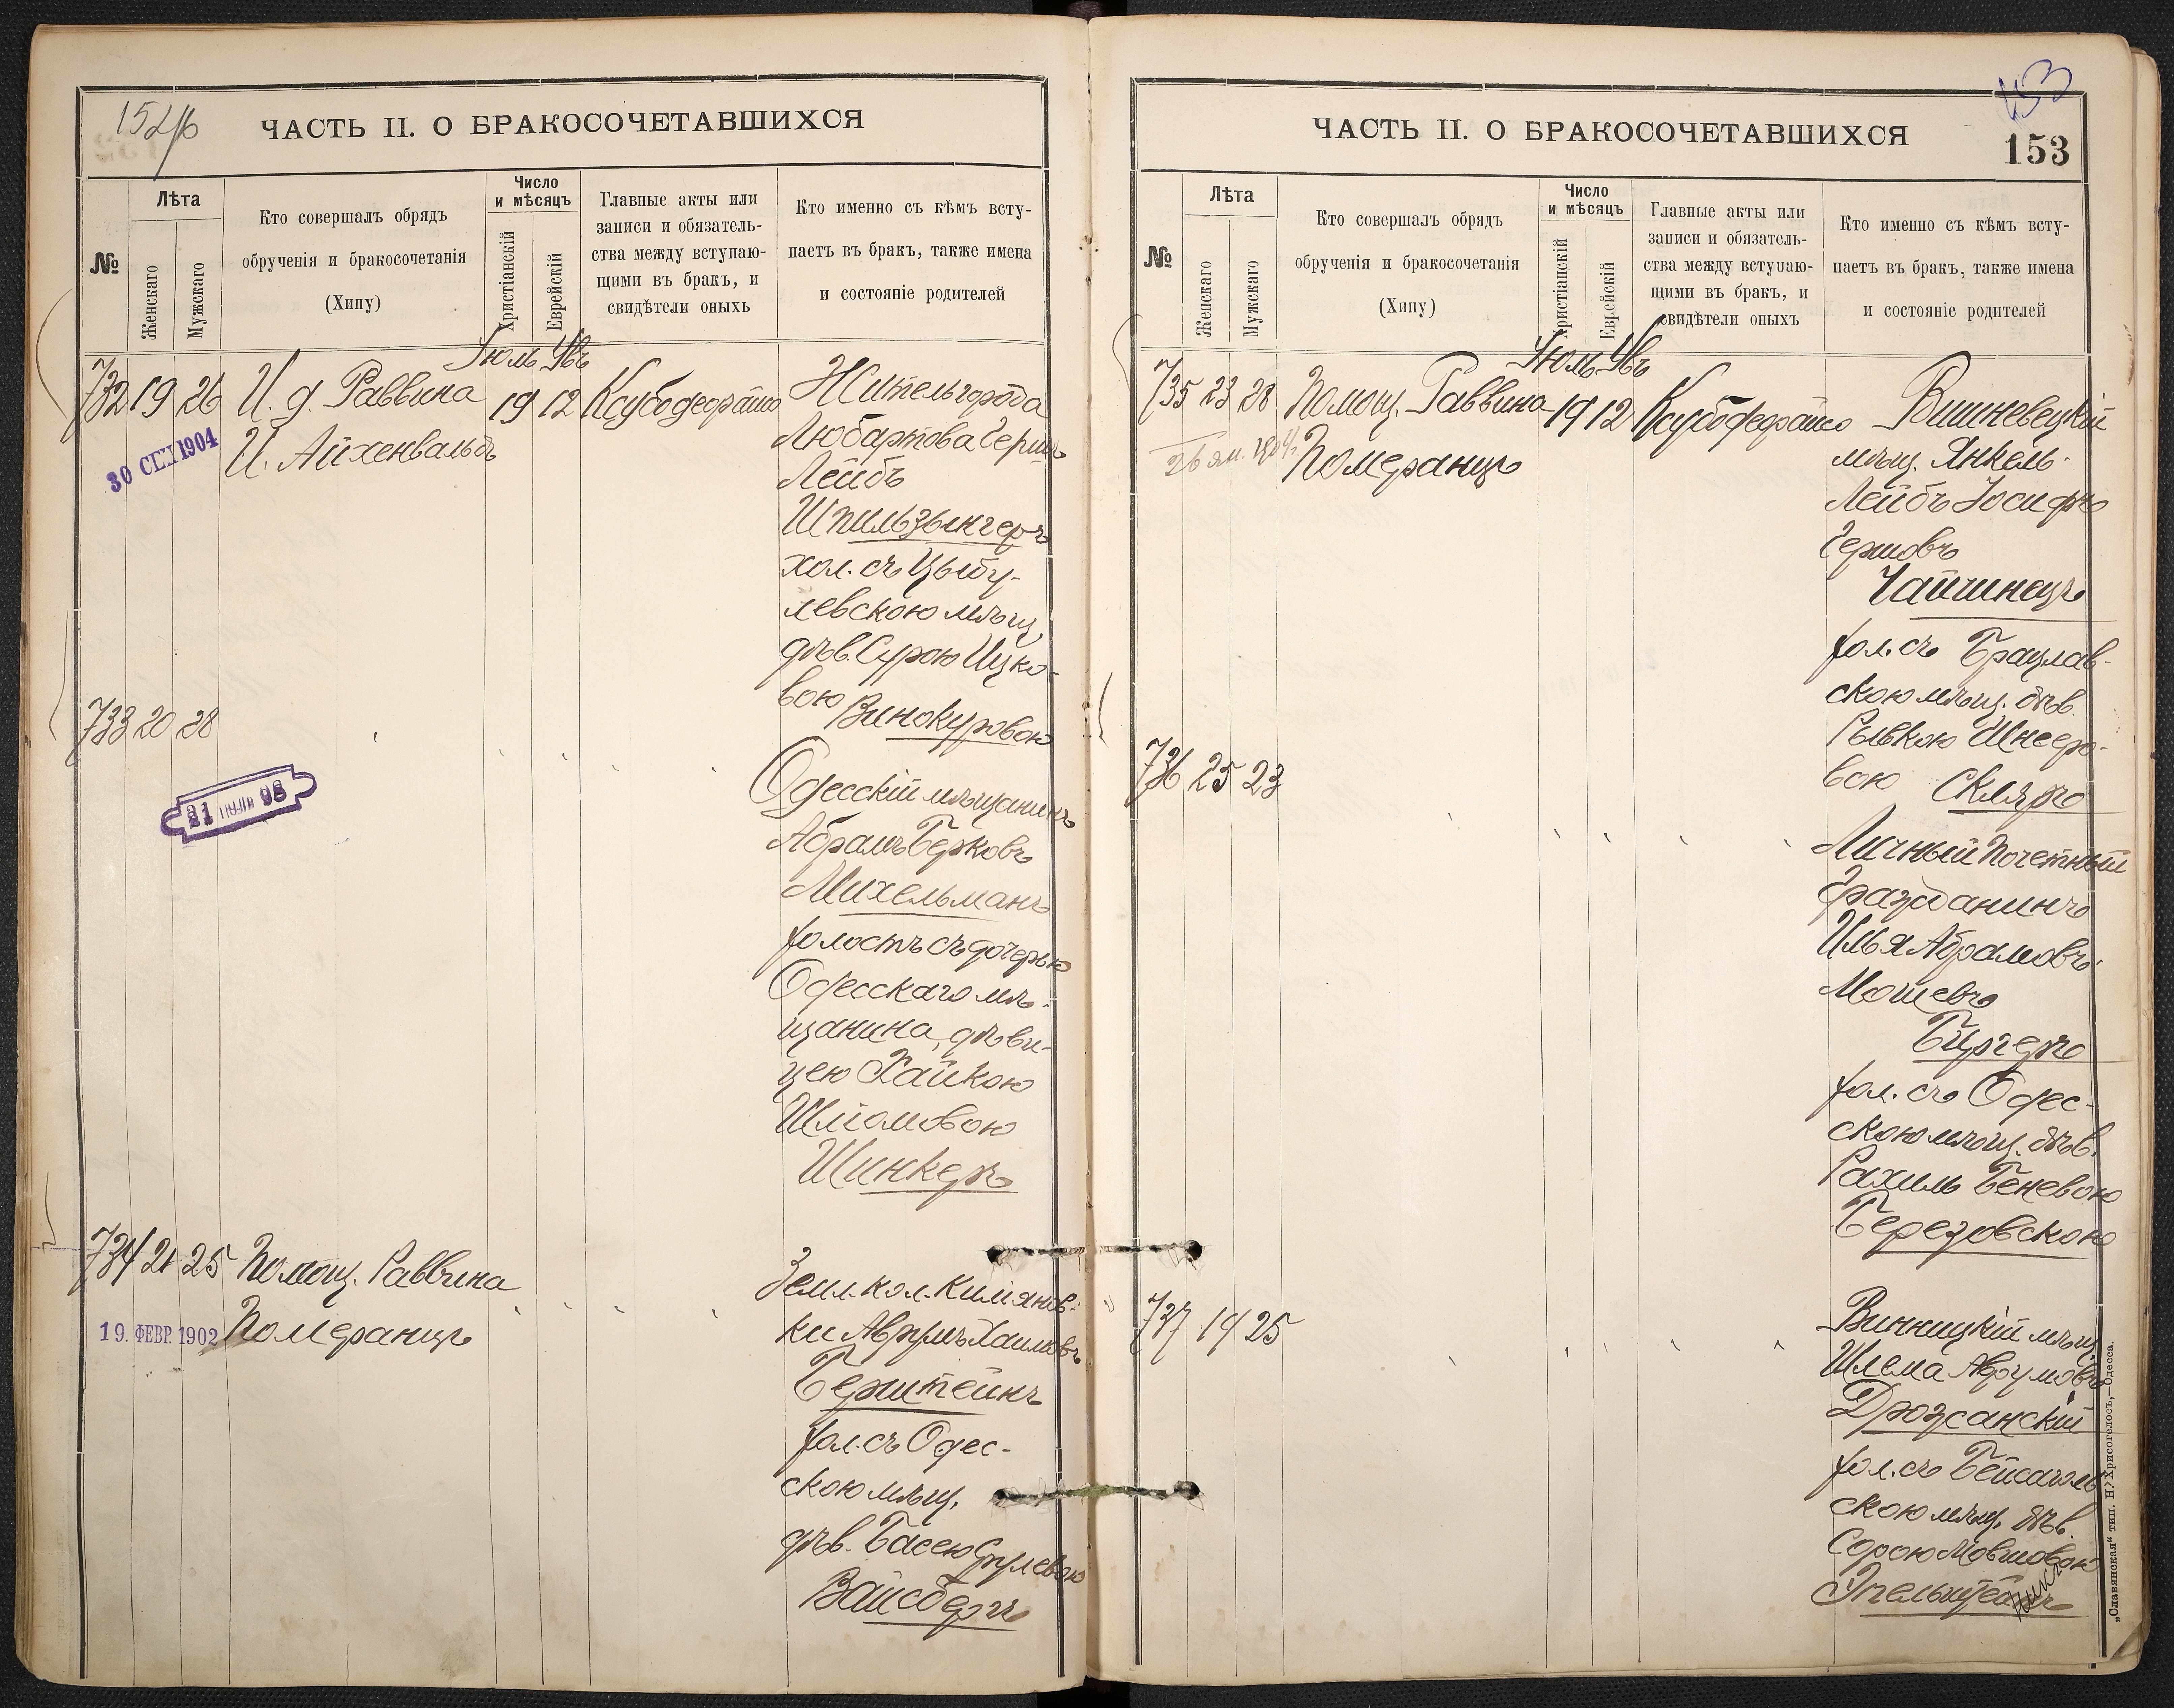 152/б
ЧАСТЬ II. О БРАКОСОЧЕТАВШИХСЯ
№
Лѣта
Женскаго
Мужскаго
Кто совершалъ обрядъ
обрученія и бракосочетанія
(Хипу)
Число
и мѣсяцъ
Христіанскій
Еврейскій
Главные акты или
записи и обязатель-
ства между вступаю-
щими въ бракъ, и
свидѣтели оныхъ
Кто именно съ кѣмъ всту-
паетъ въ бракъ, также имена
и состояніе родителей
Іюль Увъ
732 19 26 И. д. Раввина 19 12 Ксубодеорайсо Житель города
30 СЕН 1904
И. Айхенвальдъ
Любартова Герш
Лейбъ
Шпильзынгеръ
хол. съ Цыбу-
левскою мѣщ.
дѣв. Сурою Ицко-
вою Винокуровою
733 20 28
21 98
Одесскій мѣщанинъ
Абрамъ Берковъ
Михельманъ
холостъ съ дочерью
Одесскаго мѣ-
щанина, дѣви-
цею Хайкою
Шліомовою
Шинкеръ
734 21 25 Помощ. Раввина
19. ФЕВР. 1902 Померанцъ
Земл. кол. Киліянов-
ки Аврумъ Хаимовъ
Берштейнъ
хол. съ Одес-
скою мѣщ.
дѣв. Басею Срулевою
Вайсбергъ
153
ЧАСТЬ II. О БРАКОСОЧЕТАВШИХСЯ
153
№
Лѣта
Женскаго
Мужскаго
Кто совершалъ обрядъ
обрученія и бракосочетанія
(Хипу)
Число
и мѣсяцъ
Христіанскій
Еврейскій
Главные акты или
записи и обязатель-
ства между вступаю-
щими въ бракъ, и
свидѣтели оныхъ
Кто именно съ кѣмъ всту-
паетъ въ бракъ, также имена
и состояніе родителей
Іюль Увъ
735 23 28 Помощ. Раввина 19 12 Ксубодеорайсо Вишневецкій
26 ян. Померанцъ
мѣщ. Янкель-
Лейбъ Іосифъ
Гершовъ
Чайшнецъ
хол. съ Брацлав-
скою мѣщ. дѣв.
Рывкою Шнееро-
вою Скляръ
736 25 23
Личный Почетный
Гражданинъ
Илья Абрамовъ
Мошевъ
Бургеръ
хол. съ Одес-
скою мѣщ. дѣв.
Рахиль Беневою
Березовскою
737 19 25
Винницкій мѣщ.
Шлема Аврумовъ
Дрожсанскій
хол. съ
скою мѣщ. дѣв.
Сорою Мовшовою
„Славянская“ тип. Н. Хрисогелосъ,—Одесса.